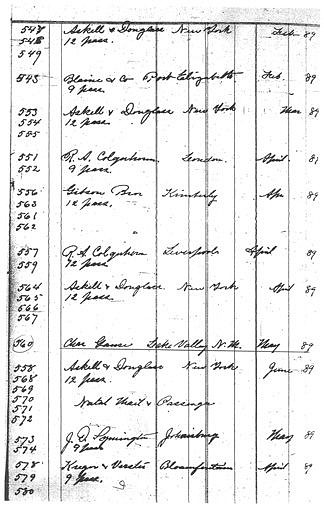 548 Askell & Douglass New York Feb. 89
548 12 pass.
549
545 Blaine & Co Port Elizabeth Feb. 89
9 pass.
553 Askell & Douglass New York Mar 89
554 12 pass.
555
551 R. A. Colquhoun. London. April 89
552 9 pass.
556 Gibson Bros Kimberly Apr 89
563 12 pass.
561
562
557 R. A Colquhoun Liverpool April 89
559 12 pass
564 Askell & Douglass New York April 89
565 12 pass.
566
567
560 Lake Valley N. M. May 89
558 Askell & Douglass New York June 89
568 12 pass.
569
570 Natal Mail & Passenger
571
572
573 J. May 89
574 9 pass
578 Bloemfontein April 89
579 9 Pass.
580